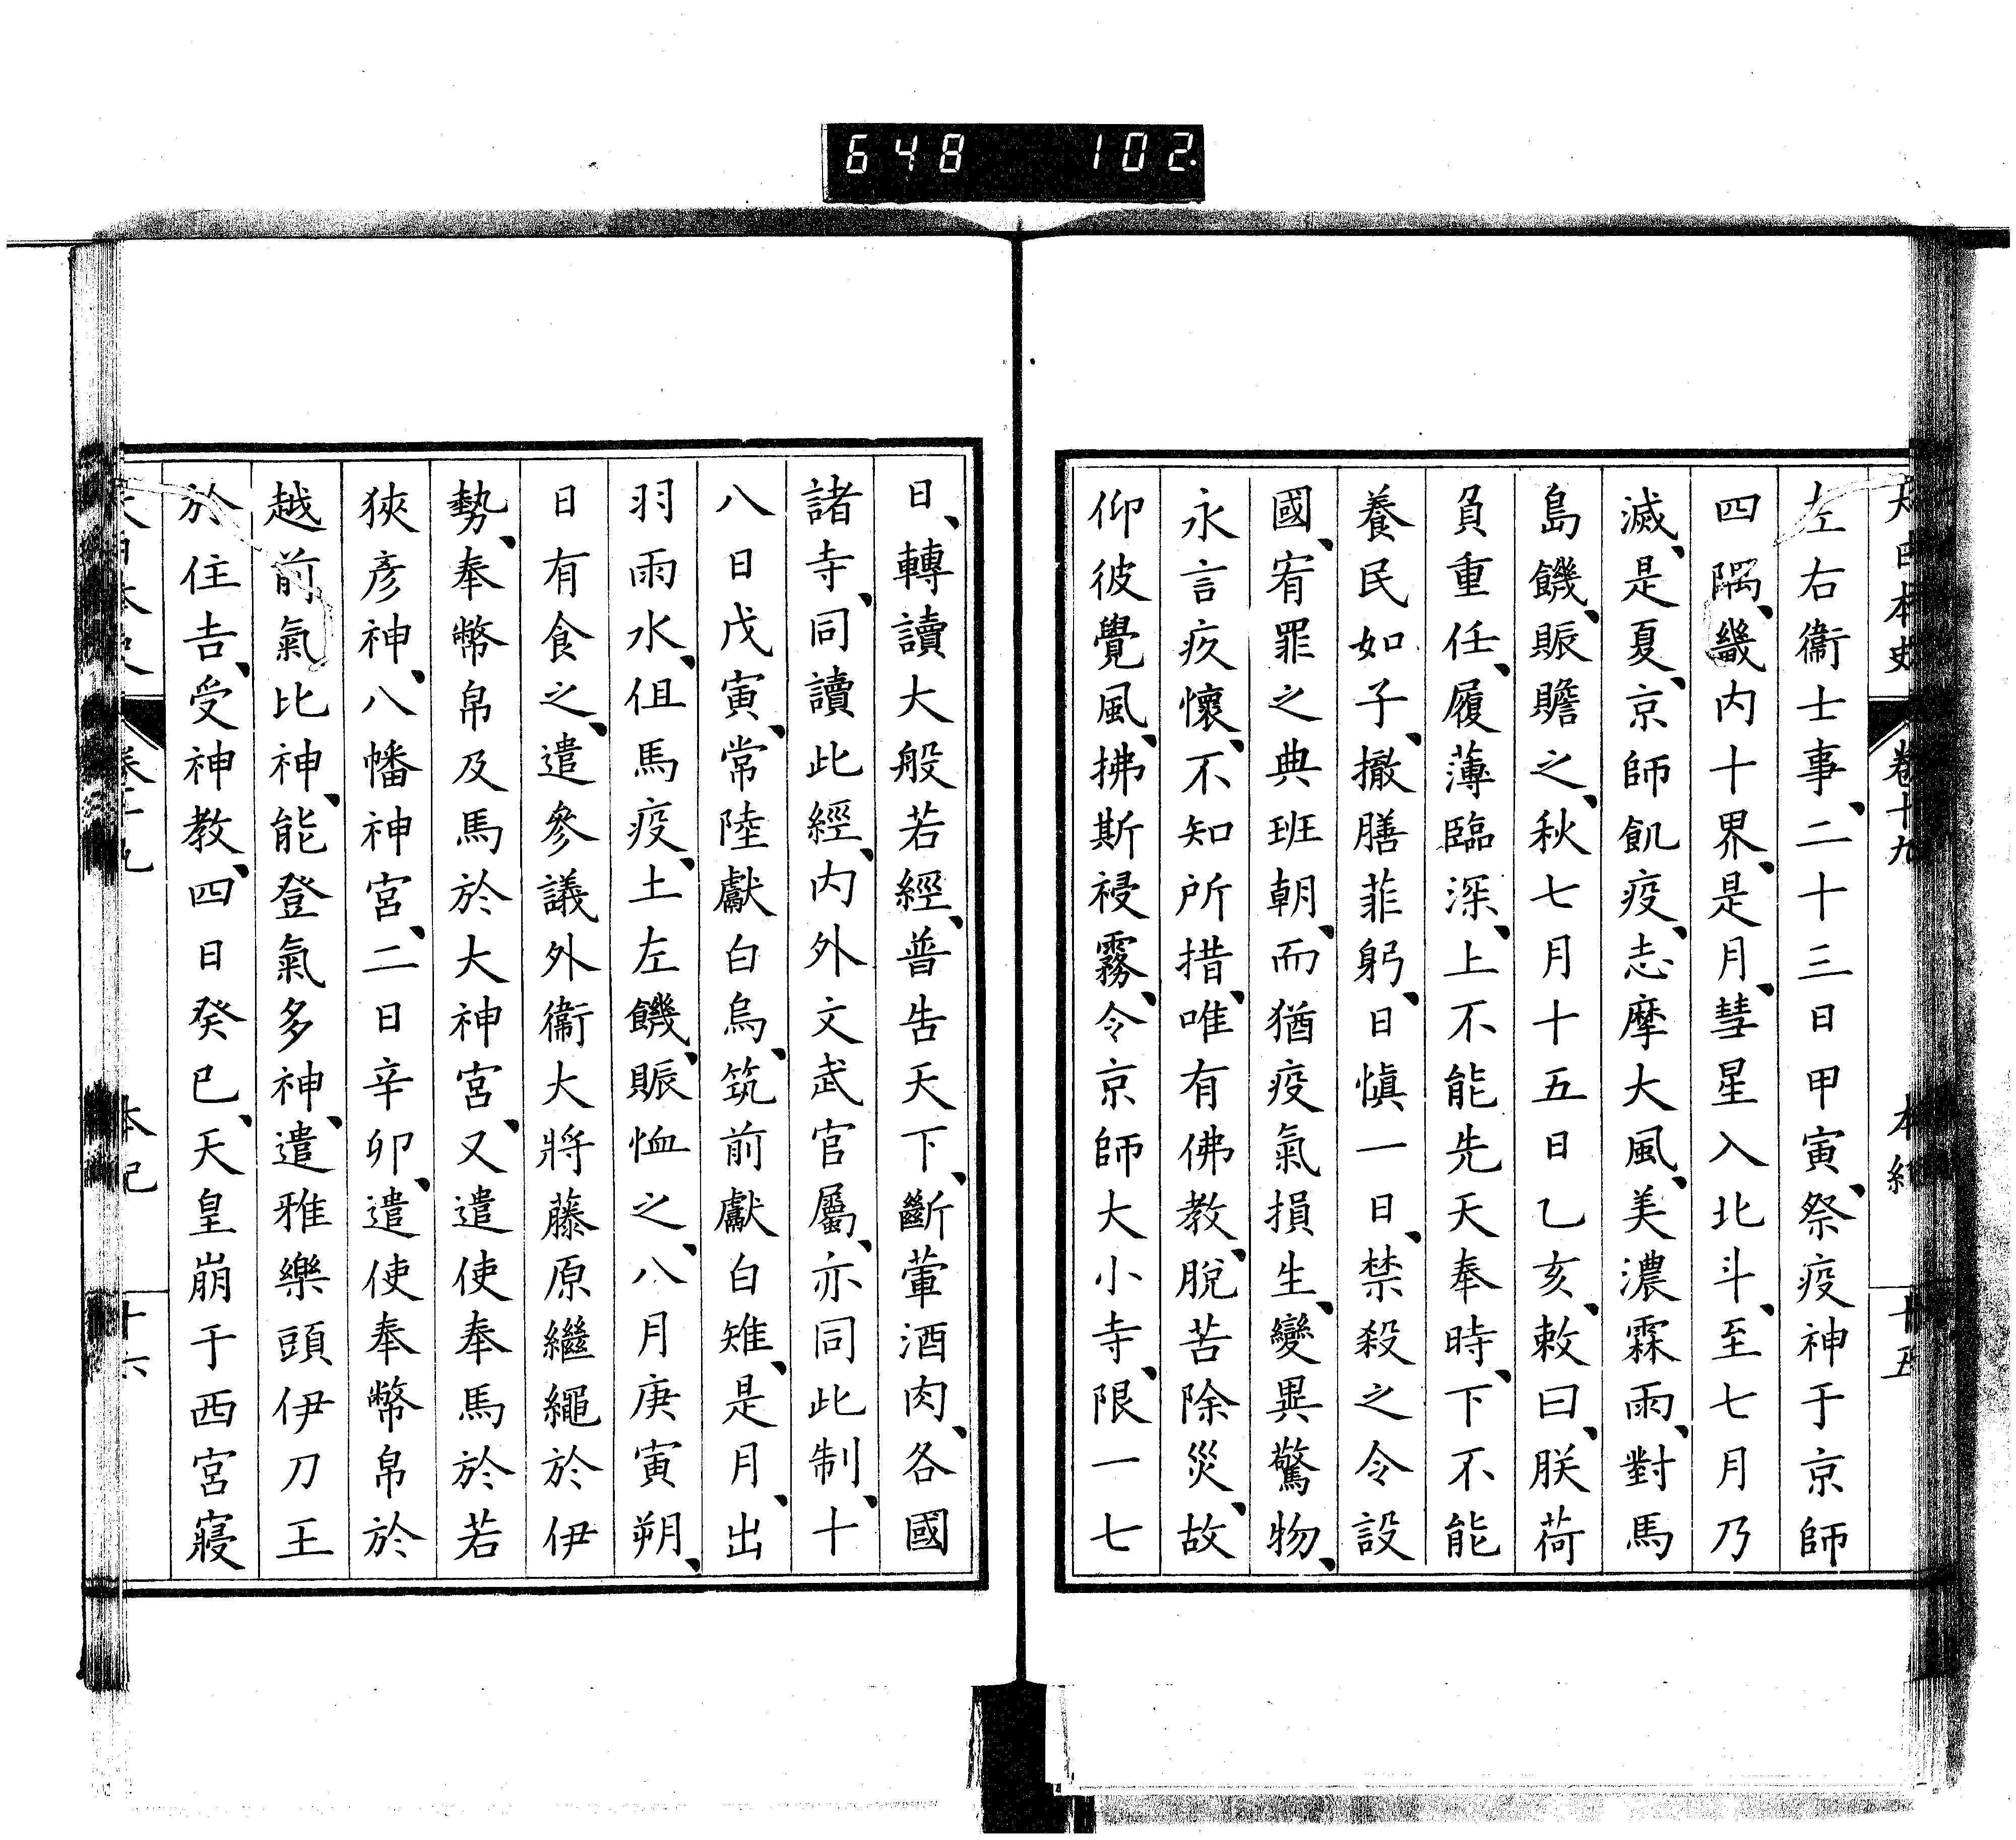 648 102
大日本史 卷十九 本紀 十五
左右衞士事、二十三日甲寅、祭疫神于京師
四隅、畿内十界、是月、彗星入北斗、至七月乃
滅、是夏、京師飢疫、志摩大風、美濃霖雨、對馬
島饑、賑贍之、秋七月十五日乙亥、敕曰、朕荷
負重任、履薄臨深、上不能先天奉時、下不能
養民如子、撤膳菲躬、日愼一日、禁殺之令設
國、宥罪之典班朝、而猶疫氣損生、變異驚物、
永言疚懷、不知所措、唯有佛教、脫苦除災、故
仰彼覺風、拂斯祲霧、令京師大小寺、限一七
日、轉讀大般若經、普告天下、斷葷酒肉、各國
諸寺、同讀此經、内外文武官屬、亦同此制、十
八日戊寅、常陸獻白烏、筑前獻白雉、是月、出
羽雨水、但馬疫、土左饑、賑恤之、八月庚寅朔、
日有食之、遣參議外衞大將藤原繼繩於伊
勢、奉幣帛及馬於大神宮、又遣使奉馬於若
狹彥神、八幡神宮、二日辛卯、遣使奉幣帛於
越前氣比神、能登氣多神、遣雅樂頭伊刀王
於住吉、受神教、四日癸巳、天皇崩于西宮寢
大日本史 卷十九 本紀 十六